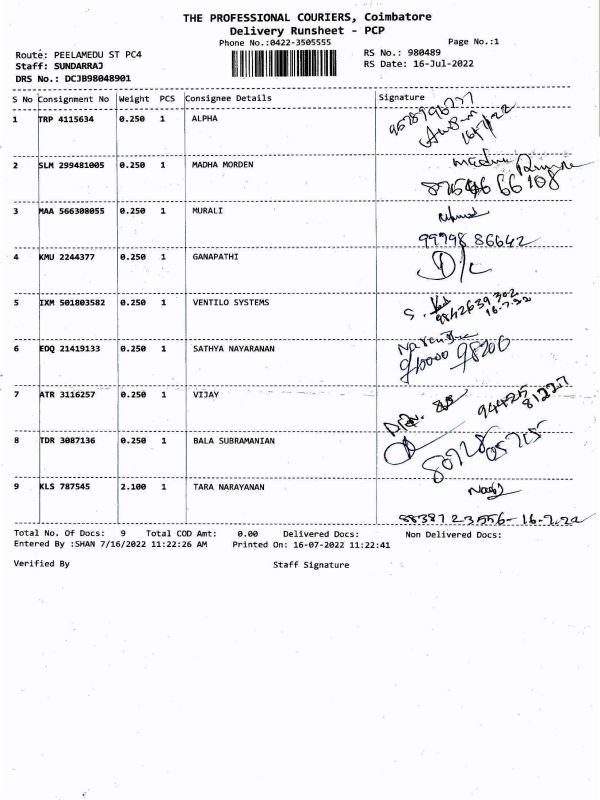 THE PROFESSIONAL COURIERS, Coimbatore
Delivery Runsheet - PCP
Phone No.:0422-3505555 Page No.:1
Route: PEELAMEDU ST PC4 RS No.: 980489
Staff: SUNDARRAJ RS Date: 16-Jul-2022
DRS No.: DCJB98048901
S No Consignment No Weight PCS Consignee Details Signature
1 TRP 4115634 0.250 1 ALPHA
16/7/22
2 SLM 299481005 0.250 1 MADHA MORDEN
3 MAA 566308055 0.250 1 MURALI
99798 86642
4 KMU 2244377 0.250 1 GANAPATHI
D/c
5 IXM 501803582 0.250 1 VENTILO SYSTEMS
S.
9842639302
16.7.22
6 EDQ 21419133 0.250 1 SATHYA NAYARANAN
910000 98206
7 ATR 3116257 0.250 1 VIJAY
94425
81227
8 TDR 3087136 0.250 1 BALA SUBRAMANIAN
80728 05715
9 KLS 787545 2.100 1 TARA NARAYANAN
8838723556- 16-7-22
Total No. Of Docs: 9 Total COD Amt: 0.00 Delivered Docs: Non Delivered Docs:
Entered By :SHAN 7/16/2022 11:22:26 AM Printed On: 16-07-2022 11:22:41
Verified By Staff Signature